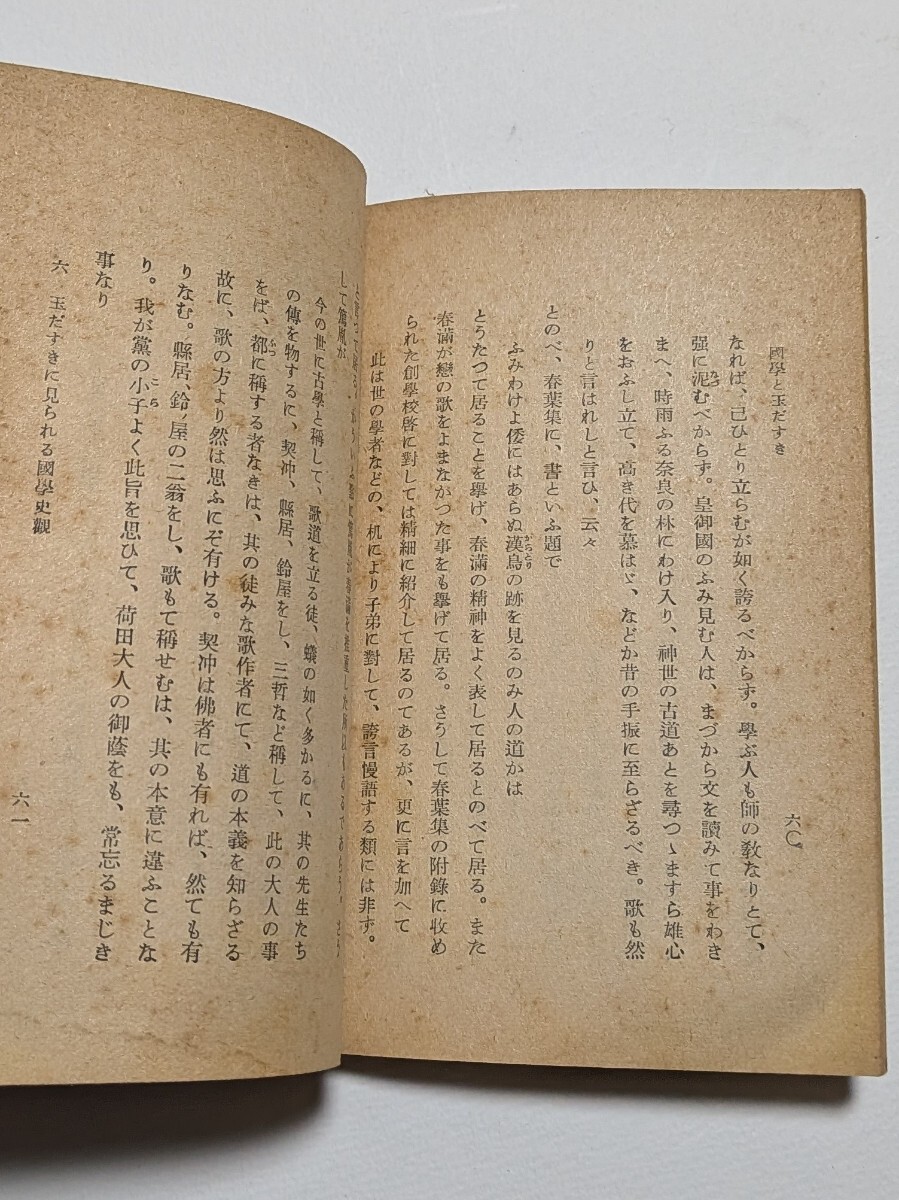 國學と玉だすき
六〇
なれば、己ひとり立らむが如く誇るべからず。學ぶ人も師の敎なりとて、
强に泥むべからず。皇御國のふみ見む人は、まづから文を讀みて事をわき
まへ、時雨ふる奈良の林にわけ入り、神世の古道あとを尋つゝますら雄心
をおふし立て、高き代を慕はゞ、などか昔の手振に至らざるべき。歌も然
りと言はれしと言ひ、云々
とのべ、春葉集に、書といふ題で
ふみわけよ倭にはあらぬ漢鳥の跡を見るのみ人の道かは
とうたつて居ることを擧げ、春滿の精神をよく表して居るとのべて居る。また
春滿が戀の歌をよまなかつた事をも擧げて居る。さうして春葉集の附錄に收め
られた創學校啓に對しては精細に紹介して居るのであるが、更に言を加へて
此は世の學者などの、机により子弟に對して、誇言慢語する類には非ず。
して篤胤が
今の世に古學と稱して、歌道を立る徒、蟻の如く多かるに、其の先生たち
の傳を物するに、契沖、縣居、鈴屋をし、三哲など稱して、此の大人の事
をば、都に稱する者なきは、其の徒みな歌作者にて、道の本義を知らざる
故に、歌の方より然は思ふにぞ有ける。契沖は佛者にも有れば、然ても有
りなむ。縣居、鈴ノ屋の二翁をし、歌もて稱せむは、其の本意に違ふことな
り。我が黨の小子よく此旨を思ひて、荷田大人の御蔭をも、常忘るまじき
事なり
六 玉だすきに見られる國學史觀
六一